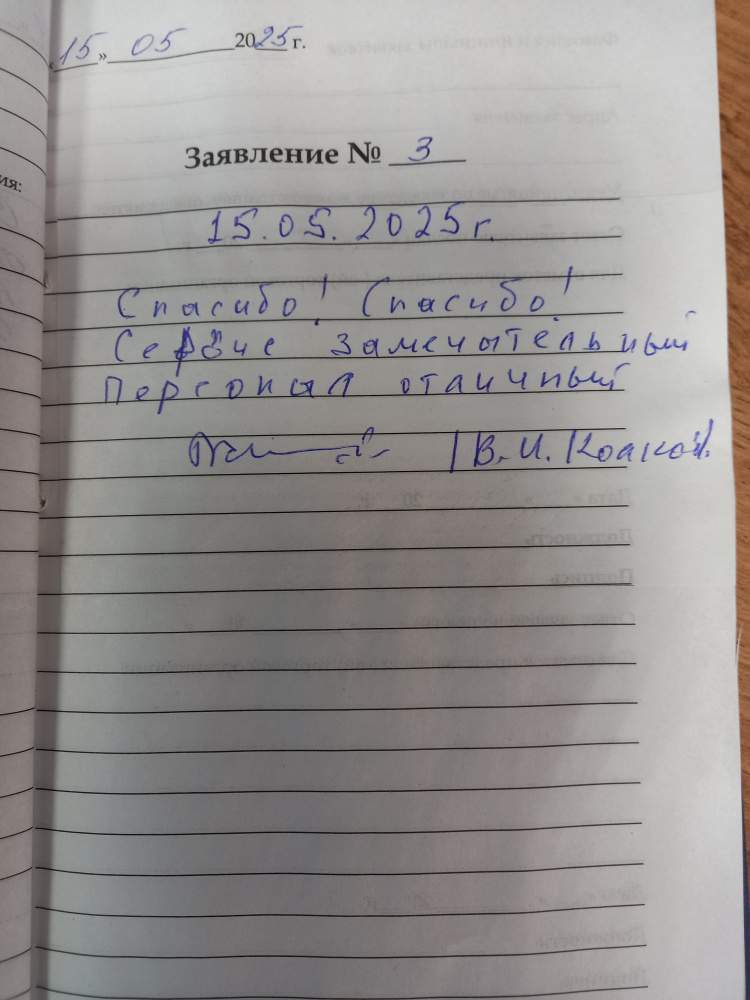 «15» 05 2025 г.
Заявление № 3
ия:
15.05.2025г.
Спасибо! Спасибо!
Сервис замечательный
Персонал отличный
/В.И.